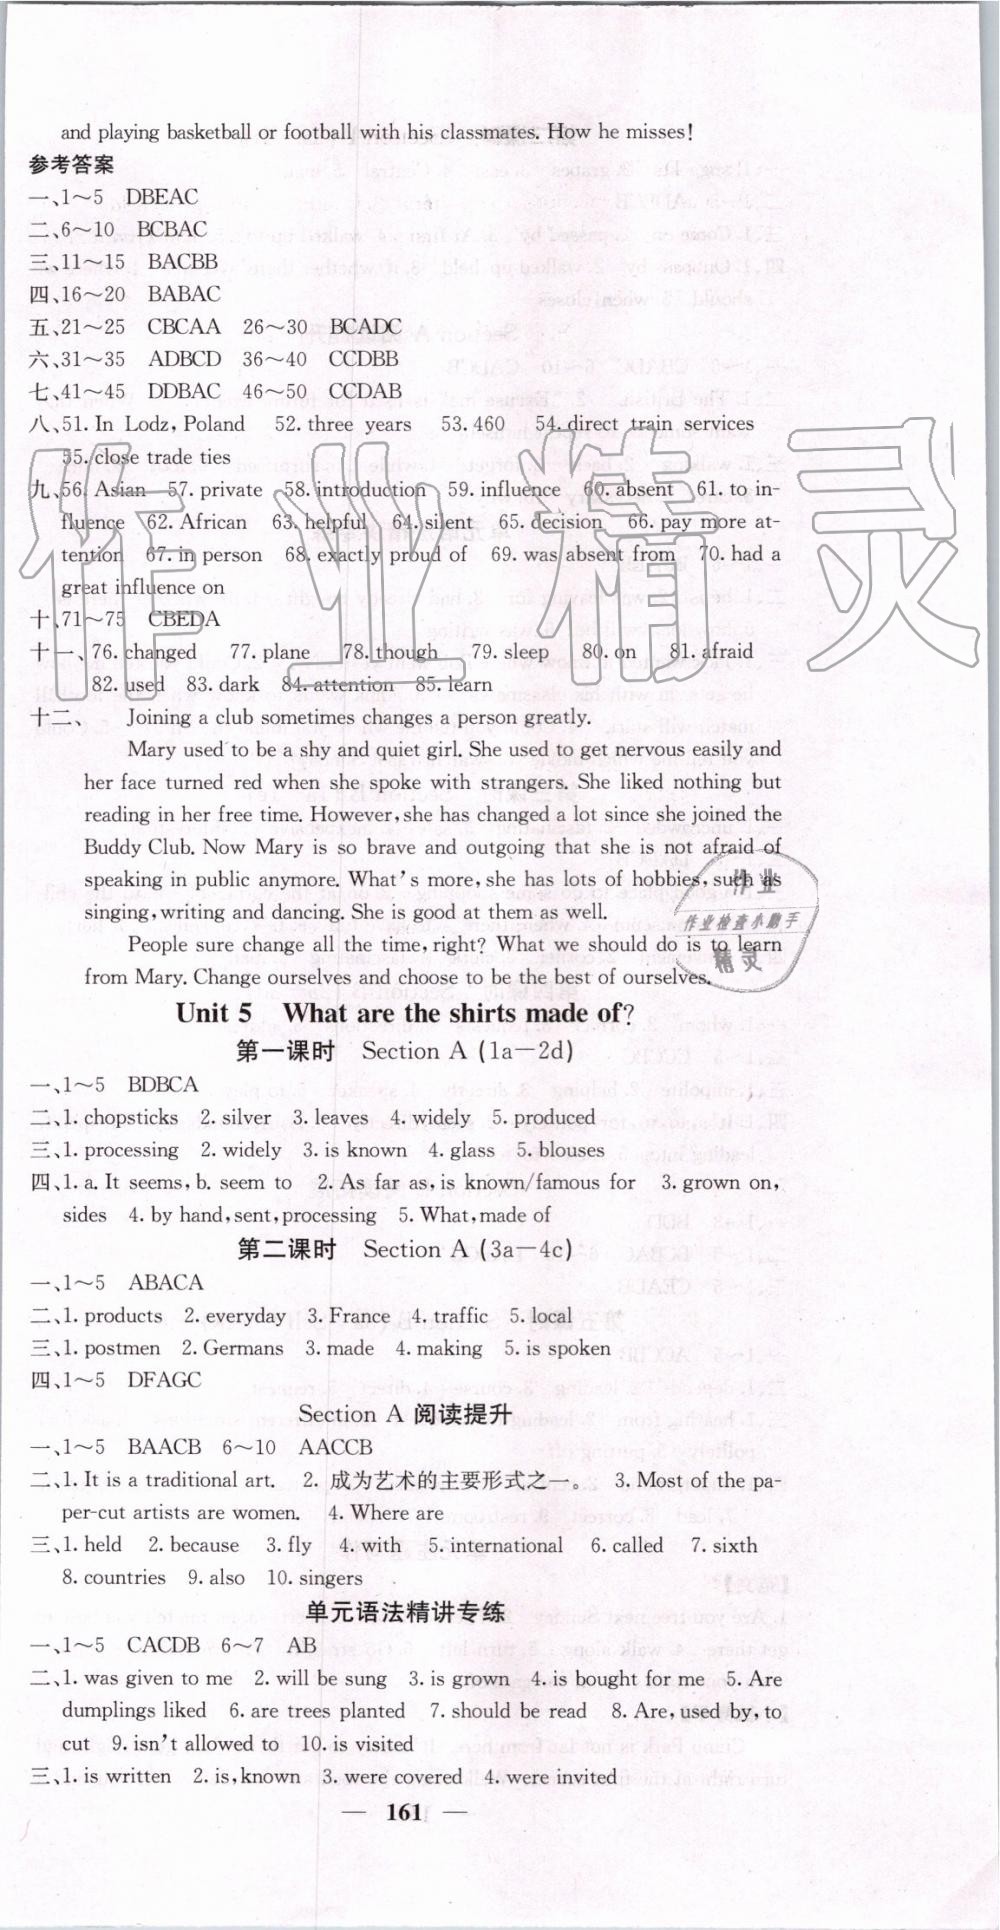 and playing basketball or football with his classmates. How he misses!
参考答案
一、1～5 DBEAC
二、6～10 BCBAC
三、11～15 BACBB
四、16～20 BABAC
五、21～25 CBCAA 26～30 BCADC
六、31～35 ADBCD 36～40 CCDBB
七、41～45 DDBAC 46～50 CCDAB
八、51. In Lodz, Poland 52. three years 53. 460 54. direct train services
55. close trade ties
九、56. Asian 57. private 58. introduction 59. influence 60. absent 61. to in-
fluence 62. African 63. helpful 64. silent 65. decision 66. pay more at-
tention 67. in person 68. exactly proud of 69. was absent from 70. had a
great influence on
十、71～75 CBEDA
十一、76. changed 77. plane 78. though 79. sleep 80. on 81. afraid
82. used 83. dark 84. attention 85. learn
十二、 Joining a club sometimes changes a person greatly.
Mary used to be a shy and quiet girl. She used to get nervous easily and
her face turned red when she spoke with strangers. She liked nothing but
reading in her free time. However, she has changed a lot since she joined the
Buddy Club. Now Mary is so brave and outgoing that she is not afraid of
speaking in public anymore. What's more, she has lots of hobbies, such as
singing, writing and dancing. She is good at them as well.
People sure change all the time, right? What we should do is to learn
from Mary. Change ourselves and choose to be the best of ourselves.
作业
作业检查小助手
精灵
作业精灵
Unit 5 What are the shirts made of?
第一课时 Section A (1a－2d)
一、1～5 BDBCA
二、1. chopsticks 2. silver 3. leaves 4. widely 5. produced
三、1. processing 2. widely 3. is known 4. glass 5. blouses
四、1. a. It seems, b. seem to 2. As far as, is known/famous for 3. grown on,
sides 4. by hand, sent, processing 5. What, made of
第二课时 Section A (3a－4c)
一、1～5 ABACA
二、1. products 2. everyday 3. France 4. traffic 5. local
三、1. postmen 2. Germans 3. made 4. making 5. is spoken
四、1～5 DFAGC
Section A 阅读提升
一、1～5 BAACB 6～10 AACCB
二、1. It is a traditional art. 2. 成为艺术的主要形式之一。 3. Most of the pa-
per-cut artists are women. 4. Where are
三、1. held 2. because 3. fly 4. with 5. international 6. called 7. sixth
8. countries 9. also 10. singers
单元语法精讲专练
一、1～5 CACDB 6～7 AB
二、1. was given to me 2. will be sung 3. is grown 4. is bought for me 5. Are
dumplings liked 6. are trees planted 7. should be read 8. Are, used by, to
cut 9. isn't allowed to 10. is visited
三、1. is written 2. is, known 3. were covered 4. were invited
— 161 —